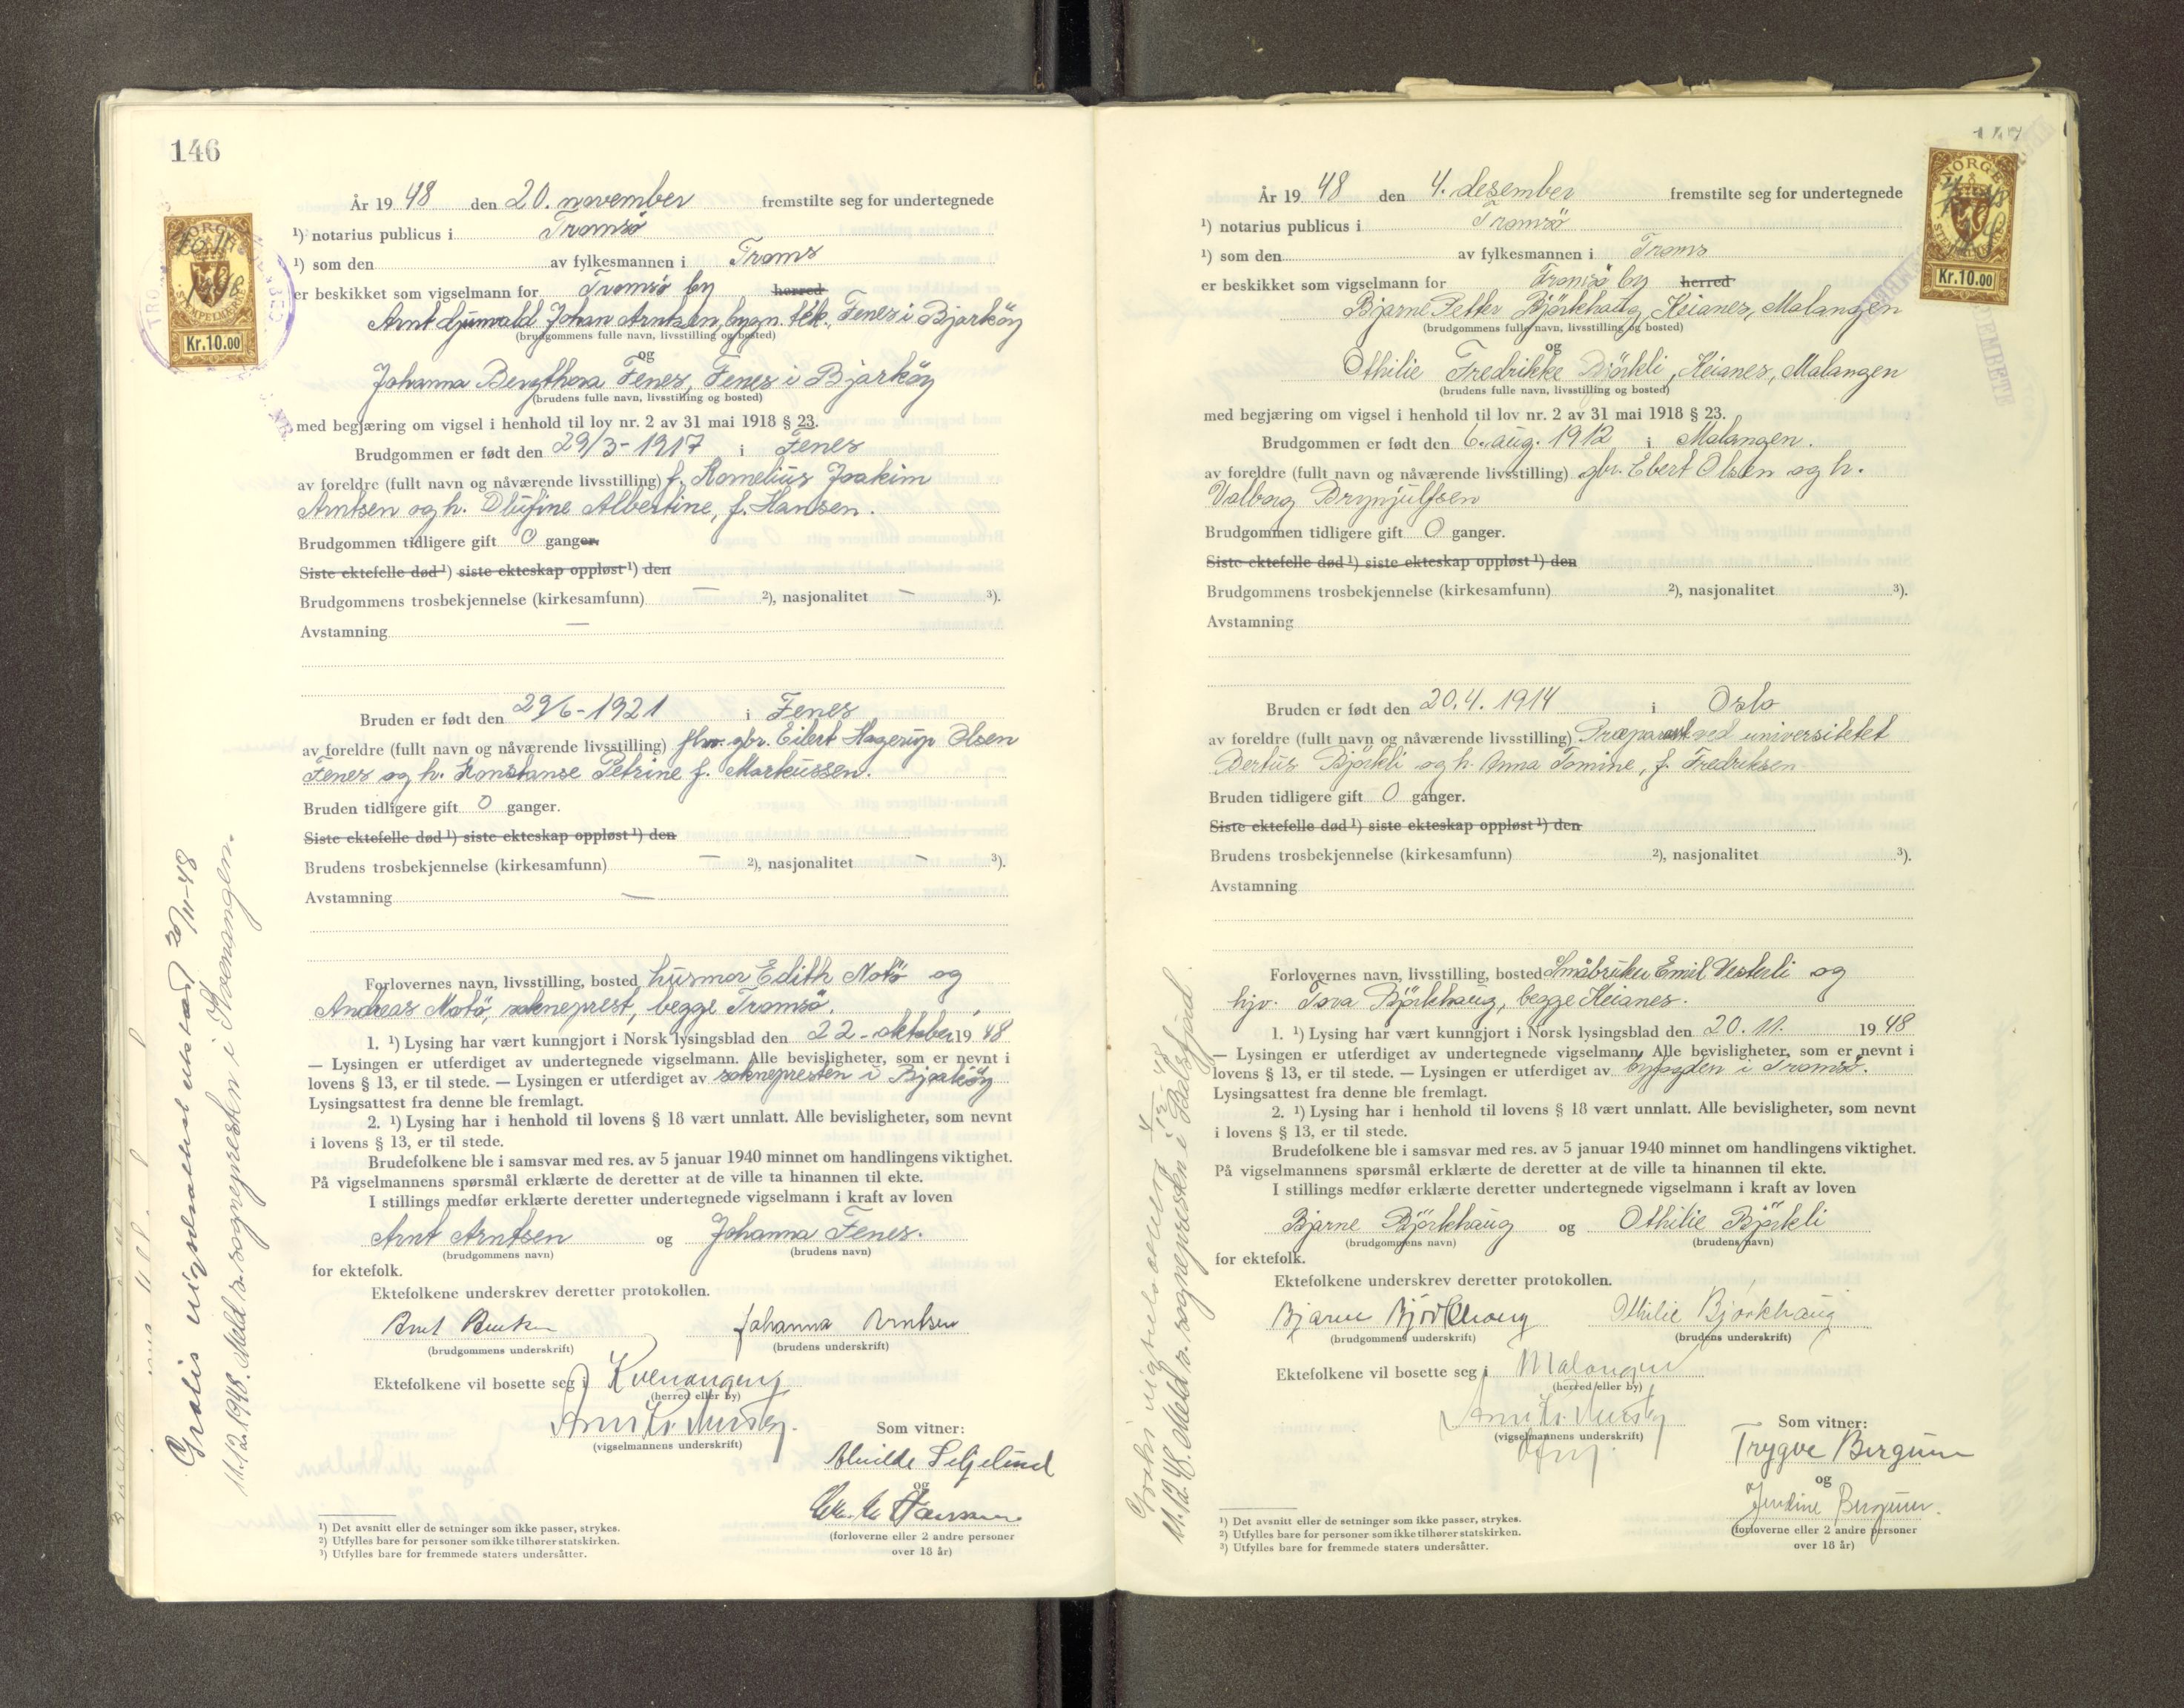 146
År 19 48 den 20. november fremstilte seg for undertegnede
¹) notarius publicus i Tromsö
¹) som den av fylkesmannen i Troms
er beskikket som vigselmann for Tromsö by herred
Arnt Johan Arntsen, bygn. tek., Fenes i Bjarköy
(brudgommens fulle navn, livsstilling og bosted)
og
Johanna Bergthora Fenes, Fenes i Bjarköy
(brudens fulle navn, livsstilling og bosted)
med begjæring om vigsel i henhold til lov nr. 2 av 31 mai 1918 § 23.
Brudgommen er født den 29/3-1917 i Fenes
av foreldre (fullt navn og nåværende livsstilling) f. Kornelius Joakim
Arntsen og h. Olufine Albertine, f. Hansen.
Brudgommen tidligere gift 0 ganger.
Siste ektefelle død ¹) siste ekteskap oppløst ¹) den
Brudgommens trosbekjennelse (kirkesamfunn) — ²), nasjonalitet — ³).
Avstamning —
Bruden er født den 29/6-1921 i Fenes
av foreldre (fullt navn og nåværende livsstilling) gbr. Eilert Hagerup Olsen
Fenes og h. Konstanse Petrine f. Markussen.
Bruden tidligere gift 0 ganger.
Siste ektefelle død ¹) siste ekteskap oppløst ¹) den
Brudens trosbekjennelse (kirkesamfunn) — ²), nasjonalitet — ³).
Avstamning —
Forlovernes navn, livsstilling, bosted husmor Edith Notö og
Andreas Notö, sokneprest, begge Tromsö.
1. ¹) Lysing har vært kunngjort i Norsk lysingsblad den 22. oktober 19 48
— Lysingen er utferdiget av undertegnede vigselmann. Alle bevisligheter, som er nevnt i
lovens § 13, er til stede. — Lysingen er utferdiget av soknepresten i Bjarköy
Lysingsattest fra denne ble fremlagt.
2. ¹) Lysing har i henhold til lovens § 18 vært unnlatt. Alle bevisligheter, som nevnt
i lovens § 13, er til stede.
Brudefolkene ble i samsvar med res. av 5 januar 1940 minnet om handlingens viktighet.
På vigselmannens spørsmål erklærte de deretter at de ville ta hinannen til ekte.
I stillings medfør erklærte deretter undertegnede vigselmann i kraft av loven
Arnt Arntsen og Johanna Fenes.
(brudgommens navn) (brudens navn)
for ektefolk.
Ektefolkene underskrev deretter protokollen.
Arnt Arntsen Johanna Arntsen
(brudgommens underskrift) (brudens underskrift)
Ektefolkene vil bosette seg i Kvenangen
(herred eller by)
(vigselmannens underskrift)
Som vitner:
Alvilde Seljelund
og
Hanssen
(forloverne eller 2 andre personer
over 18 år)
¹) Det avsnitt eller de setninger som ikke passer, strykes.
²) Utfylles bare for personer som ikke tilhører statskirken.
³) Utfylles bare for fremmede staters undersåtter.
Gratis vigselsattest utstedt 20/11-48
11.12.1948. Meld. s. sognepresten i Kvænangen.
NORGE
20/11
1948
STEMPELMERKE
Kr.10.00
147
År 19 48 den 4. desember fremstilte seg for undertegnede
¹) notarius publicus i Tromsö
¹) som den av fylkesmannen i Troms
er beskikket som vigselmann for Tromsö by herred
Bjarne Petter Björkhaug, Keianes, Malangen
(brudgommens fulle navn, livsstilling og bosted)
og
Othilie Fredrikke Björkli, Keianes, Malangen
(brudens fulle navn, livsstilling og bosted)
med begjæring om vigsel i henhold til lov nr. 2 av 31 mai 1918 § 23.
Brudgommen er født den 6. aug. 1912 i Malangen.
av foreldre (fullt navn og nåværende livsstilling) gbr. Ebert Olsen og h.
Valborg Brynjulfsen
Brudgommen tidligere gift 0 ganger.
Siste ektefelle død ¹) siste ekteskap oppløst ¹) den
Brudgommens trosbekjennelse (kirkesamfunn) ²), nasjonalitet ³).
Avstamning
Bruden er født den 20.4.1914 i Oslo
av foreldre (fullt navn og nåværende livsstilling) Præparant ved universitetet
Bertus Björkli og h. Anna Tomine, f. Fredriksen
Bruden tidligere gift 0 ganger.
Siste ektefelle død ¹) siste ekteskap oppløst ¹) den
Brudens trosbekjennelse (kirkesamfunn) ²), nasjonalitet ³).
Avstamning
Forlovernes navn, livsstilling, bosted Småbruker Emil Vesterli og
hjv. Tova Björkhaug, begge Keianes.
1. ¹) Lysing har vært kunngjort i Norsk lysingsblad den 20.11. 19 48
— Lysingen er utferdiget av undertegnede vigselmann. Alle bevisligheter, som er nevnt i
lovens § 13, er til stede. — Lysingen er utferdiget av byfogden i Tromsö.
Lysingsattest fra denne ble fremlagt.
2. ¹) Lysing har i henhold til lovens § 18 vært unnlatt. Alle bevisligheter, som nevnt
i lovens § 13, er til stede.
Brudefolkene ble i samsvar med res. av 5 januar 1940 minnet om handlingens viktighet.
På vigselmannens spørsmål erklærte de deretter at de ville ta hinannen til ekte.
I stillings medfør erklærte deretter undertegnede vigselmann i kraft av loven
Bjarne Björkhaug og Othilie Björkli
(brudgommens navn) (brudens navn)
for ektefolk.
Ektefolkene underskrev deretter protokollen.
Bjarne Björkhaug Othilie Björkhaug
(brudgommens underskrift) (brudens underskrift)
Ektefolkene vil bosette seg i Malangen
(herred eller by)
(vigselmannens underskrift)
Som vitner:
Trygve Bergum
og
Jendine Bergum.
(forloverne eller 2 andre personer
over 18 år)
¹) Det avsnitt eller de setninger som ikke passer, strykes.
²) Utfylles bare for personer som ikke tilhører statskirken.
³) Utfylles bare for fremmede staters undersåtter.
Gratis vigselsattest 4/12-48
11.12.48. Meld. s. sognepresten i Balsfjord.
NORGE
Kr.10.00